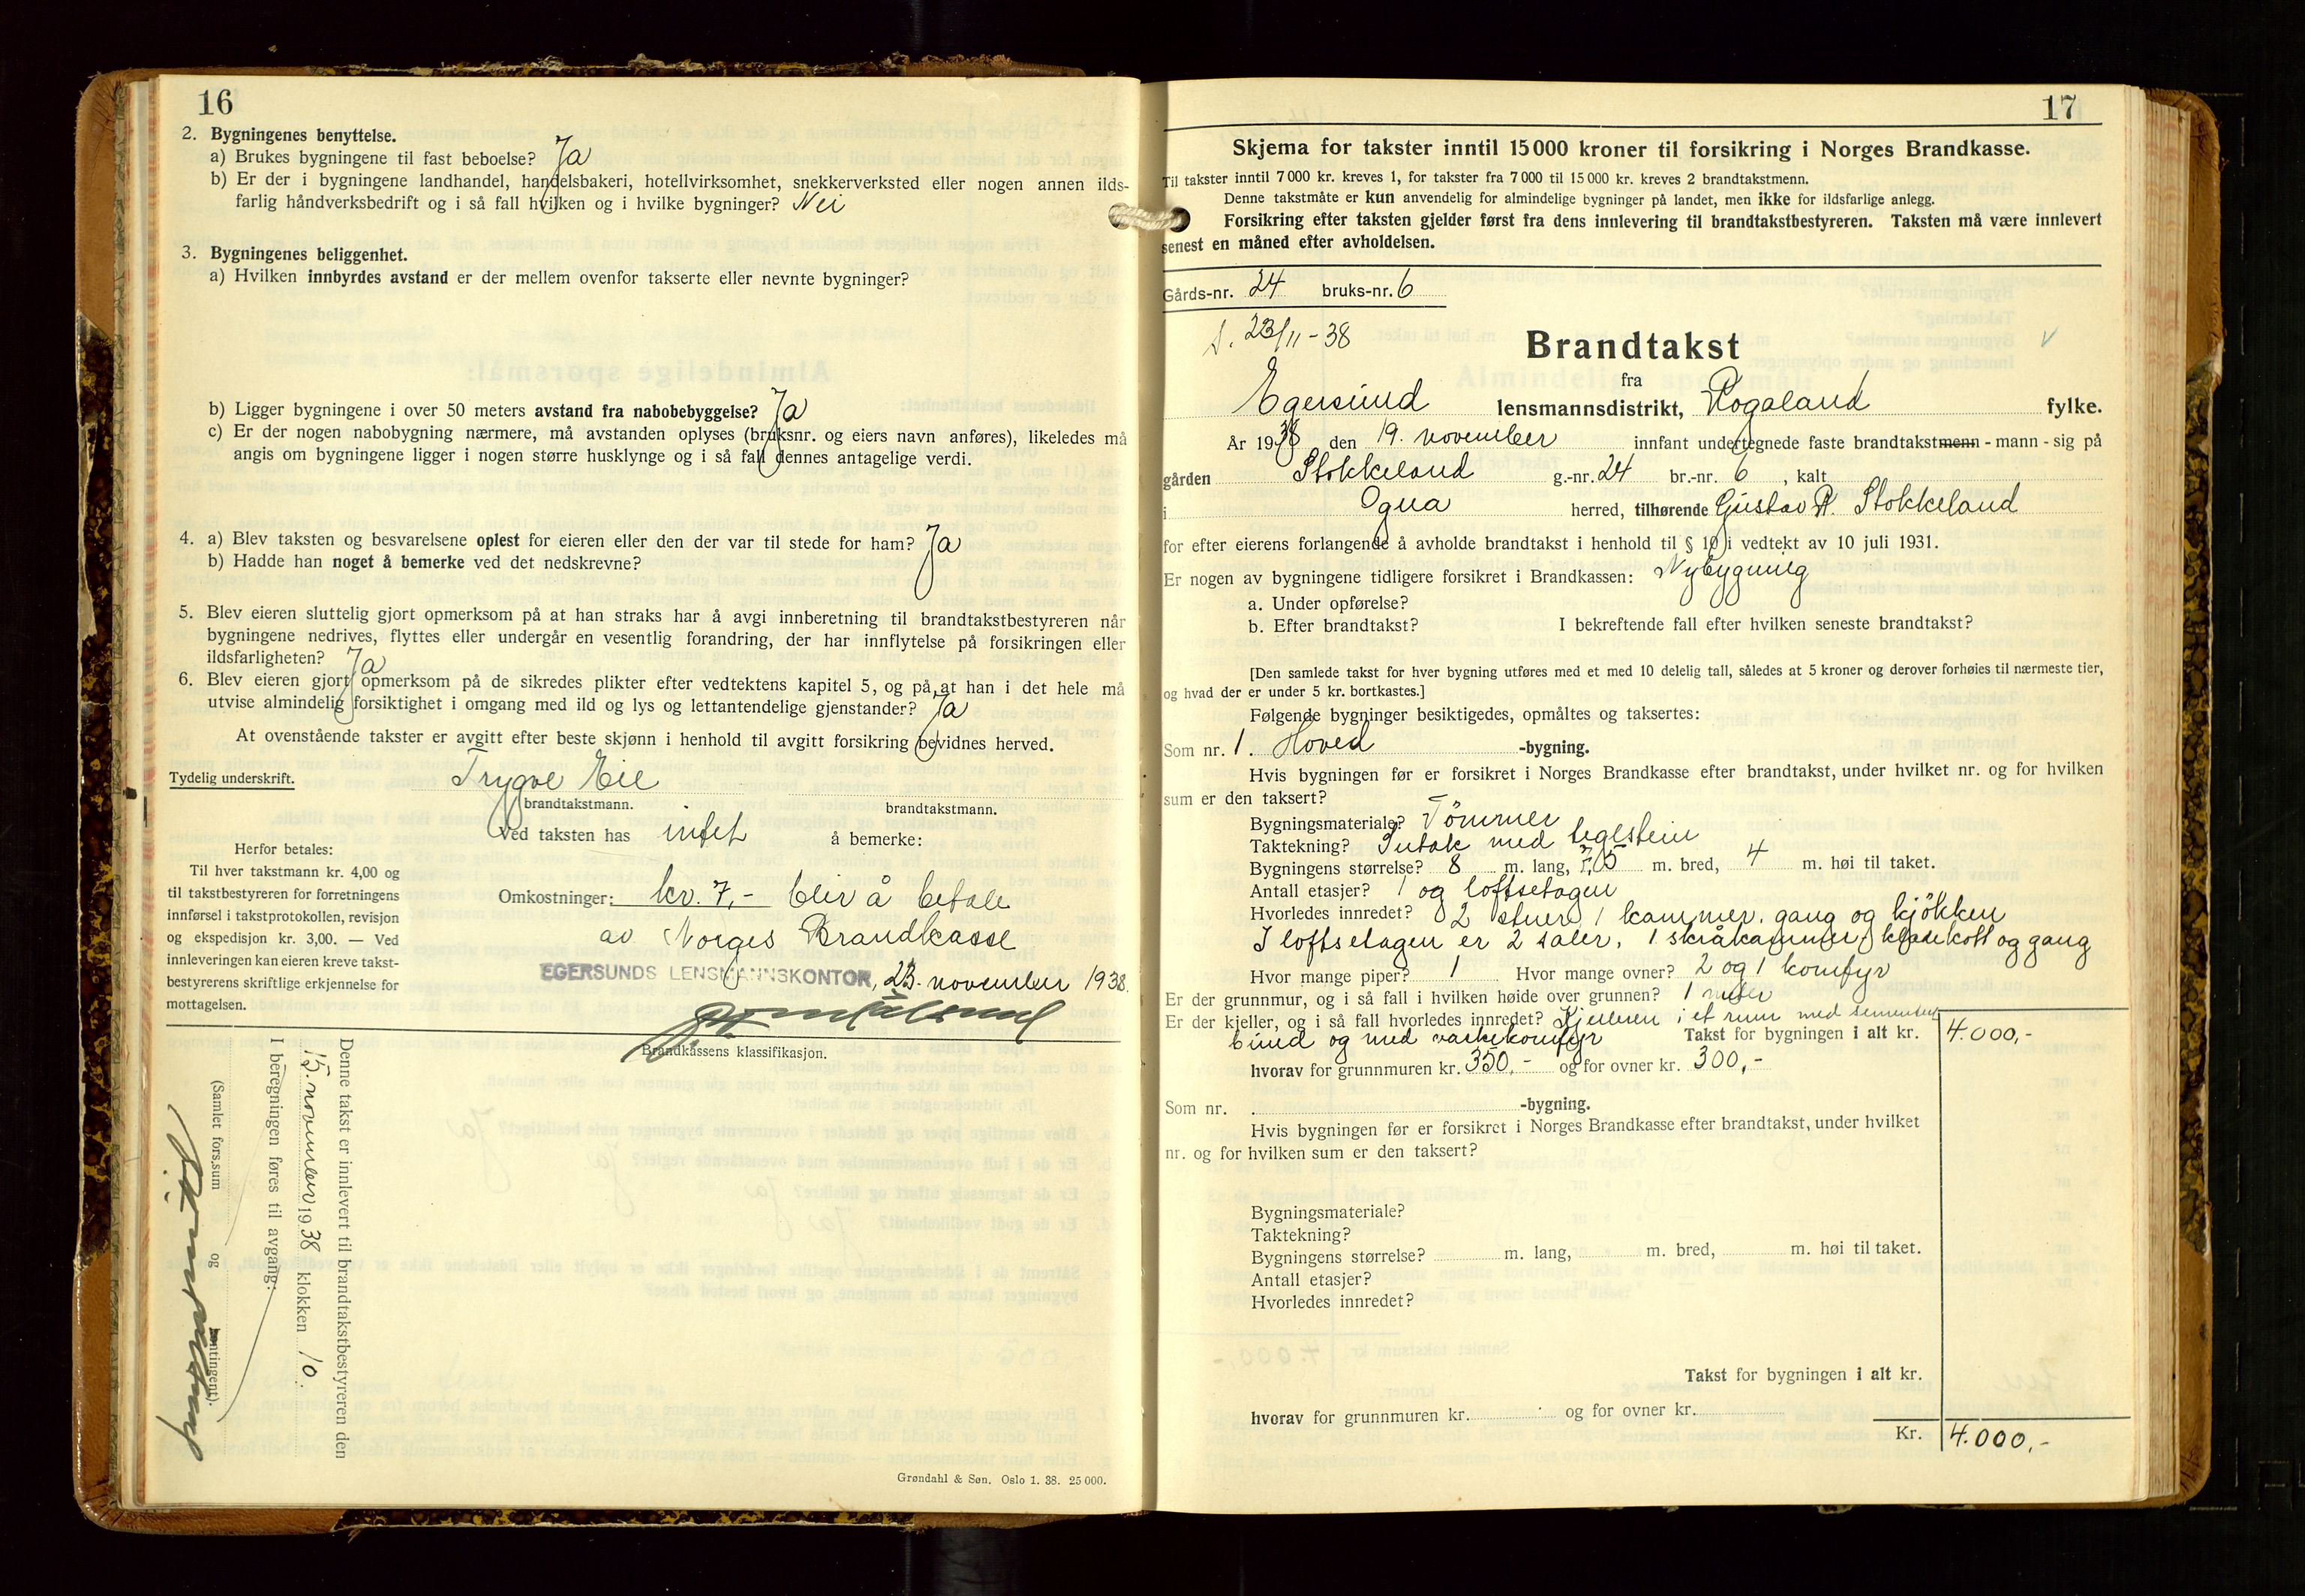 16
2. Bygningenes benyttelse.
a) Brukes bygningene til fast beboelse? Ja
b) Er der i bygningene landhandel, handelsbakeri, hotellvirksomhet, snekkerverksted eller nogen annen ilds-
farlig håndverksbedrift og i så fall hvilken og i hvilke bygninger? Nei
3. Bygningenes beliggenhet.
a) Hvilken innbyrdes avstand er der mellem ovenfor takserte eller nevnte bygninger?
b) Ligger bygningene i over 50 meters avstand fra nabobebyggelse? Ja
c) Er der nogen nabobygning nærmere, må avstanden oplyses (bruksnr. og eiers navn anføres), likeledes må
angis om bygningene ligger i nogen større husklynge og i så fall dennes antagelige verdi.
4. a) Blev taksten og besvarelsene oplest for eieren eller den der var til stede for ham? Ja
b) Hadde han noget å bemerke ved det nedskrevne?
5. Blev eieren sluttelig gjort opmerksom på at han straks har å avgi innberetning til brandtakstbestyreren når
bygningene nedrives, flyttes eller undergår en vesentlig forandring, der har innflytelse på forsikringen eller
ildsfarligheten? Ja
6. Blev eieren gjort opmerksom på de sikredes plikter efter vedtektens kapitel 5, og på at han i det hele må
utvise almindelig forsiktighet i omgang med ild og lys og lettantendelige gjenstander? Ja
At ovenstående takster er avgitt efter beste skjønn i henhold til avgitt forsikring bevidnes herved.
Tydelig underskrift. Trygve Eie
brandtakstmann. brandtakstmann.
Ved taksten has intet å bemerke:
Herfor betales:
Til hver takstmann kr. 4,00 og
til takstbestyreren for forretningens
innførsel i takstprotokollen, revisjon
og ekspedisjon kr. 3,00. — Ved
innleveringen kan eieren kreve takst-
bestyrerens skriftlige erkjennelse for
mottagelsen.
Omkostninger: kr. 7,- blir å betale
av Norges Brandkasse
EGERSUNDS LENSMANNSKONTOR, 23. november 1938.
Brandkassens klassifikasjon.
Denne takst er innlevert til brandtakstbestyreren den
15. november 1938 klokken 10.
I beregningen føres til avgang:
(Samlet fors.sum og kontingent).
Grøndahl & Søn. Oslo 1. 38. 25 000.
17
Skjema for takster inntil 15 000 kroner til forsikring i Norges Brandkasse.
Til takster inntil 7 000 kr. kreves 1, for takster fra 7 000 til 15 000 kr. kreves 2 brandtakstmenn.
Denne takstmåte er kun anvendelig for almindelige bygninger på landet, men ikke for ildsfarlige anlegg.
Forsikring efter taksten gjelder først fra dens innlevering til brandtakstbestyreren. Taksten må være innlevert
senest en måned efter avholdelsen.
Gårds-nr. 24 bruks-nr. 6
23/11-38
Brandtakst
fra
Egersund lensmannsdistrikt, Rogaland fylke.
År 1938 den 19. november innfant undertegnede faste brandtakstmenn - mann - sig på
gården Stokkeland g.-nr. 24 br.-nr. 6, kalt
i Ogna herred, tilhørende Gustav R. Stokkeland
for efter eierens forlangende å avholde brandtakst i henhold til § 10 i vedtekt av 10 juli 1931.
Er nogen av bygningene tidligere forsikret i Brandkassen: Nybygning
a. Under opførelse?
b. Efter brandtakst? I bekreftende fall efter hvilken seneste brandtakst?
[Den samlede takst for hver bygning utføres med et med 10 delelig tall, således at 5 kroner og derover forhøies til nærmeste tier,
og hvad der er under 5 kr. bortkastes.]
Følgende bygninger besiktigedes, opmåltes og taksertes:
Som nr. 1. Hoved -bygning.
Hvis bygningen før er forsikret i Norges Brandkasse efter brandtakst, under hvilket nr. og for hvilken
sum er den taksert?
Bygningsmateriale? Tömmer
Taktekning? Sutak med teglstein
Bygningens størrelse? 8 m. lang, 7,5 m. bred, 4 m. høi til taket.
Antall etasjer? 1 og loftsetagen
Hvorledes innredet? 2 stuer 1 kammer. gang og kjökken
I loftsetagen er 2 saler, 1 skråkammer, kladekott og gang
Hvor mange piper? 1 Hvor mange ovner? 2 og 1 komfyr
Er der grunnmur, og i så fall i hvilken høide over grunnen? 1 meter
Er der kjeller, og i så fall hvorledes innredet? Kjelleren i et rum med sementert
bund og med vaskekomfyr Takst for bygningen i alt kr. 4.000,-
hvorav for grunnmuren kr. 350,- og for ovner kr. 300,-
Som nr. -bygning.
Hvis bygningen før er forsikret i Norges Brandkasse efter brandtakst, under hvilket
nr. og for hvilken sum er den taksert?
Bygningsmateriale?
Taktekning?
Bygningens størrelse? m. lang, m. bred, m. høi til taket.
Antall etasjer?
Hvorledes innredet?
Takst for bygningen i alt kr.
hvorav for grunnmuren kr. og for ovner kr.
Kr. 4.000,-